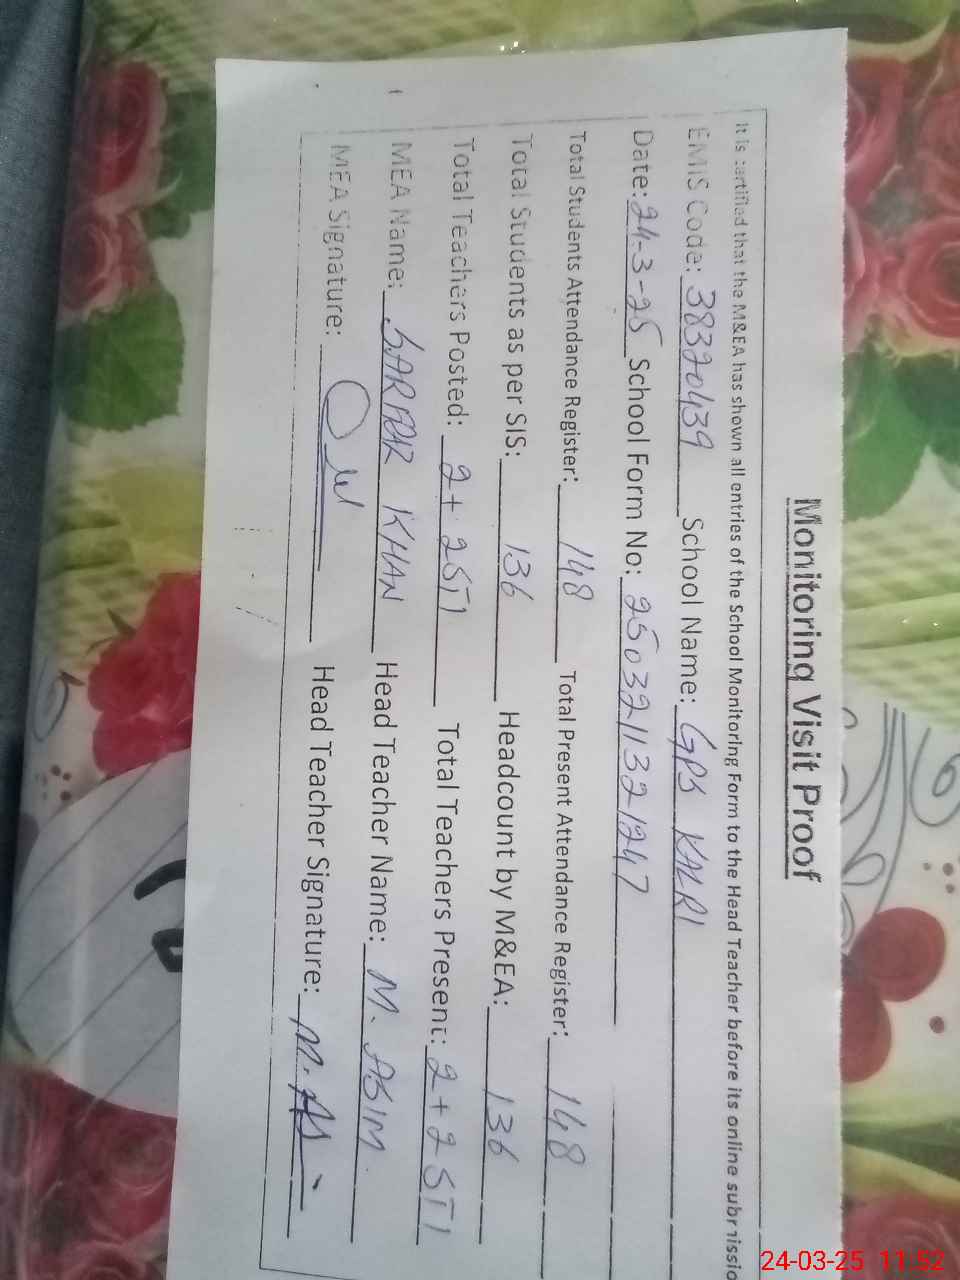 Monitoring Visit Proof
It is certified that the M&EA has shown all entries of the School Monitoring Form to the Head Teacher before its online submissio
EMIS Code: 38320439 School Name: GPS KALRI
Date: 24-3-25 School Form No: 2503211321247
Total Students Attendance Register: 148 Total Present Attendance Register: 148
Total Students as per SIS: 136 Headcount by M&EA: 136
Total Teachers Posted: 2+2STI Total Teachers Present: 2+2STI
MEA Name: KHAN Head Teacher Name: M. ASIM
MEA Signature: Head Teacher Signature: M. As
24-03-25 11:52